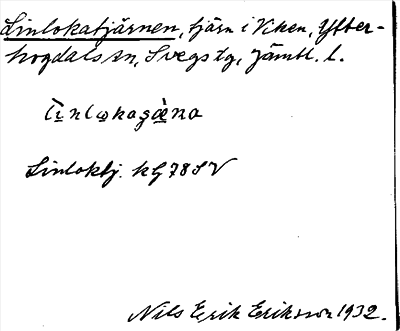 Linlokatjärnen, tjärn i Viken, Ytter-
hogdals sn, Svegs tg, Jämtl. l.
Linloktj. kG 78 SV
Nils Erik Eriksson 1932.